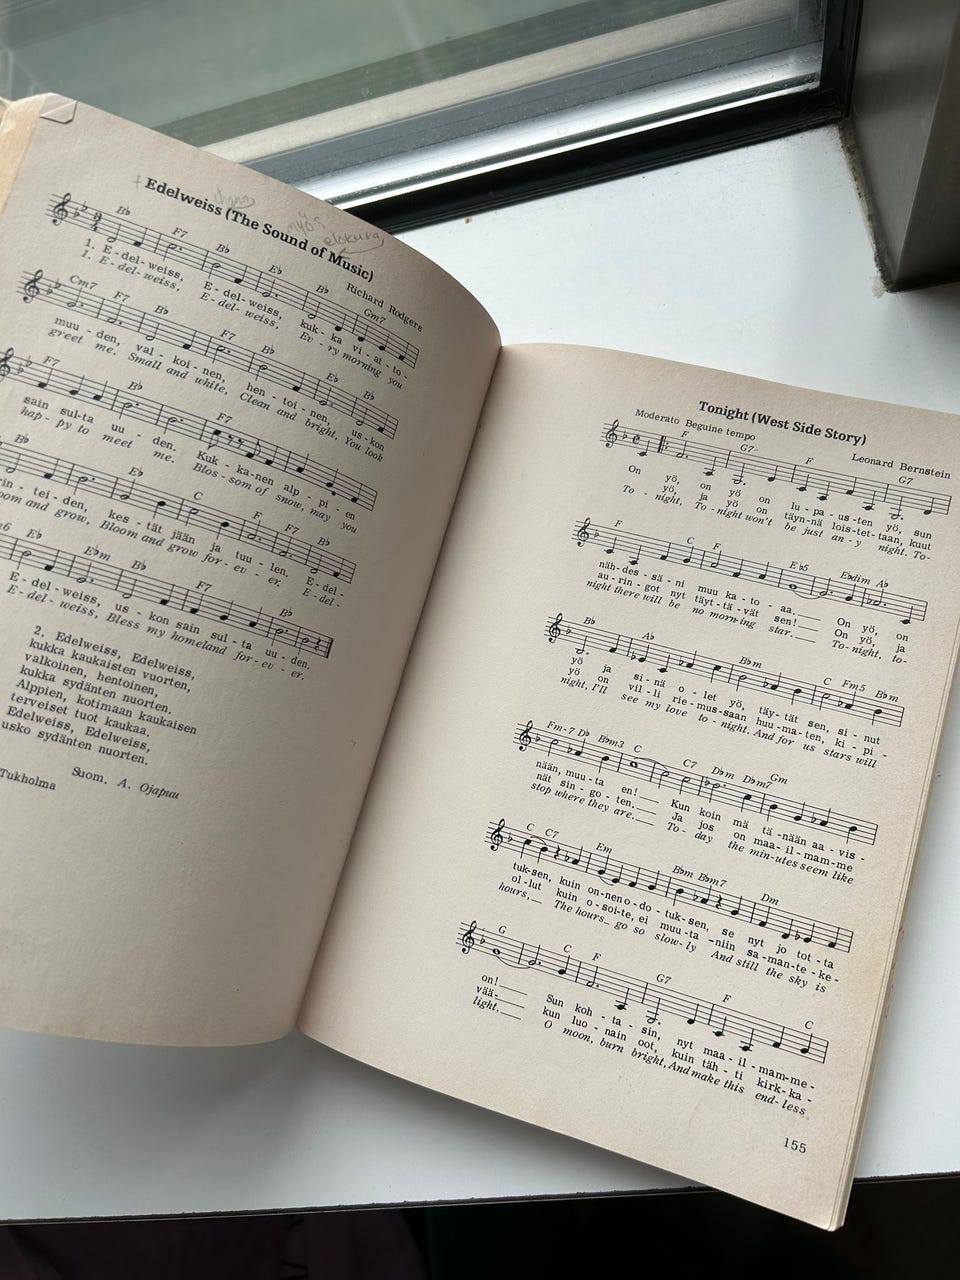 Edelweiss (The Sound of Music)
myös
elokuva
Richard Rodgers
B♭ F7 B♭ E♭ B♭ Gm7
1. E-del-weiss, E-del-weiss, kuk-ka vi-at-to-
1. E-del-weiss, E-del-weiss, Ev-ry morning you
Cm7 F7 B♭ F7 B♭ E♭ B♭
muu-den, val-koi-nen, hen-toi-nen, us-kon
greet me. Small and white, Clean and bright, You look
F7 B♭ F7
sain sul-ta uu-den. Kuk-ka-nen alp-pi-en
hap-py to meet me. Blos-som of snow, may you
B♭ E♭ C F F7
rin-tei-den, kes-tät jään ja tuu-len. E-del-
oom and grow, Bloom and grow for-ev-er. E-del-
E♭ E♭m B♭ F7 B♭
E-del-weiss, us-kon sain sul-ta uu-den.
E-del-weiss, Bless my homeland for-ev-er.
2. Edelweiss, Edelweiss,
kukka kaukaisten vuorten,
valkoinen, hentoinen,
kukka sydänten nuorten.
Alppien, kotimaan kaukaisen
terveiset tuot kaukaa.
Edelweiss, Edelweiss,
usko sydänten nuorten.
Suom. A. Ojapuu
Tukholma
Tonight (West Side Story)
Moderato Beguine tempo
Leonard Bernstein
F G7 F G7
On yö, on yö on lu-pa-us-ten yö, sun
yö, ja yö on täyn-nä lois-tet-taan, kuut
To-night, To-night won't be just an-y night. To-
F C F E♭5 E♭dim A♭
näh-des-sä-ni muu ka-to-aa.___ On yö, on
au-rin-got nyt täyt-tä-vät sen!___ On yö, ja
night there will be no morn-ing star.___ To-night, to-
B♭ A♭ B♭m C Fm5 B♭m
yö ja si-nä o-let yö, täy-tät sen, si-nut
yö on vil-li rie-mus-saan huu-ma-ten, ki-pi-
night, I'll see my love to-night. And for us stars will
Fm-7 D♭ B♭m3 C C7 D♭m D♭m7 Gm
nään, muu-ta en!___ Kun koin mä tä-nään aa-vis-
nät sin-go-ten.___ Ja jos on maa-il-mam-me
stop where they are.___ To-day the min-utes seem like
C C7 Em B♭m B♭m7 Dm
tuk-sen, kuin on-nen o-do-tuk-sen, se nyt jo tot-ta
ol-lut kuin o-soi-te, ei muu-ta-niin sa-man-te-ke-
hours,__ The hours_ go so slow-ly And still the sky is
G C F G7 F C
on!___ Sun koh-ta-sin, nyt maa-il-mam-me-
vää-___ kun luo-nain oot, kuin täh-ti kirk-ka-
light.___ O moon, burn bright, And make this end-less
155